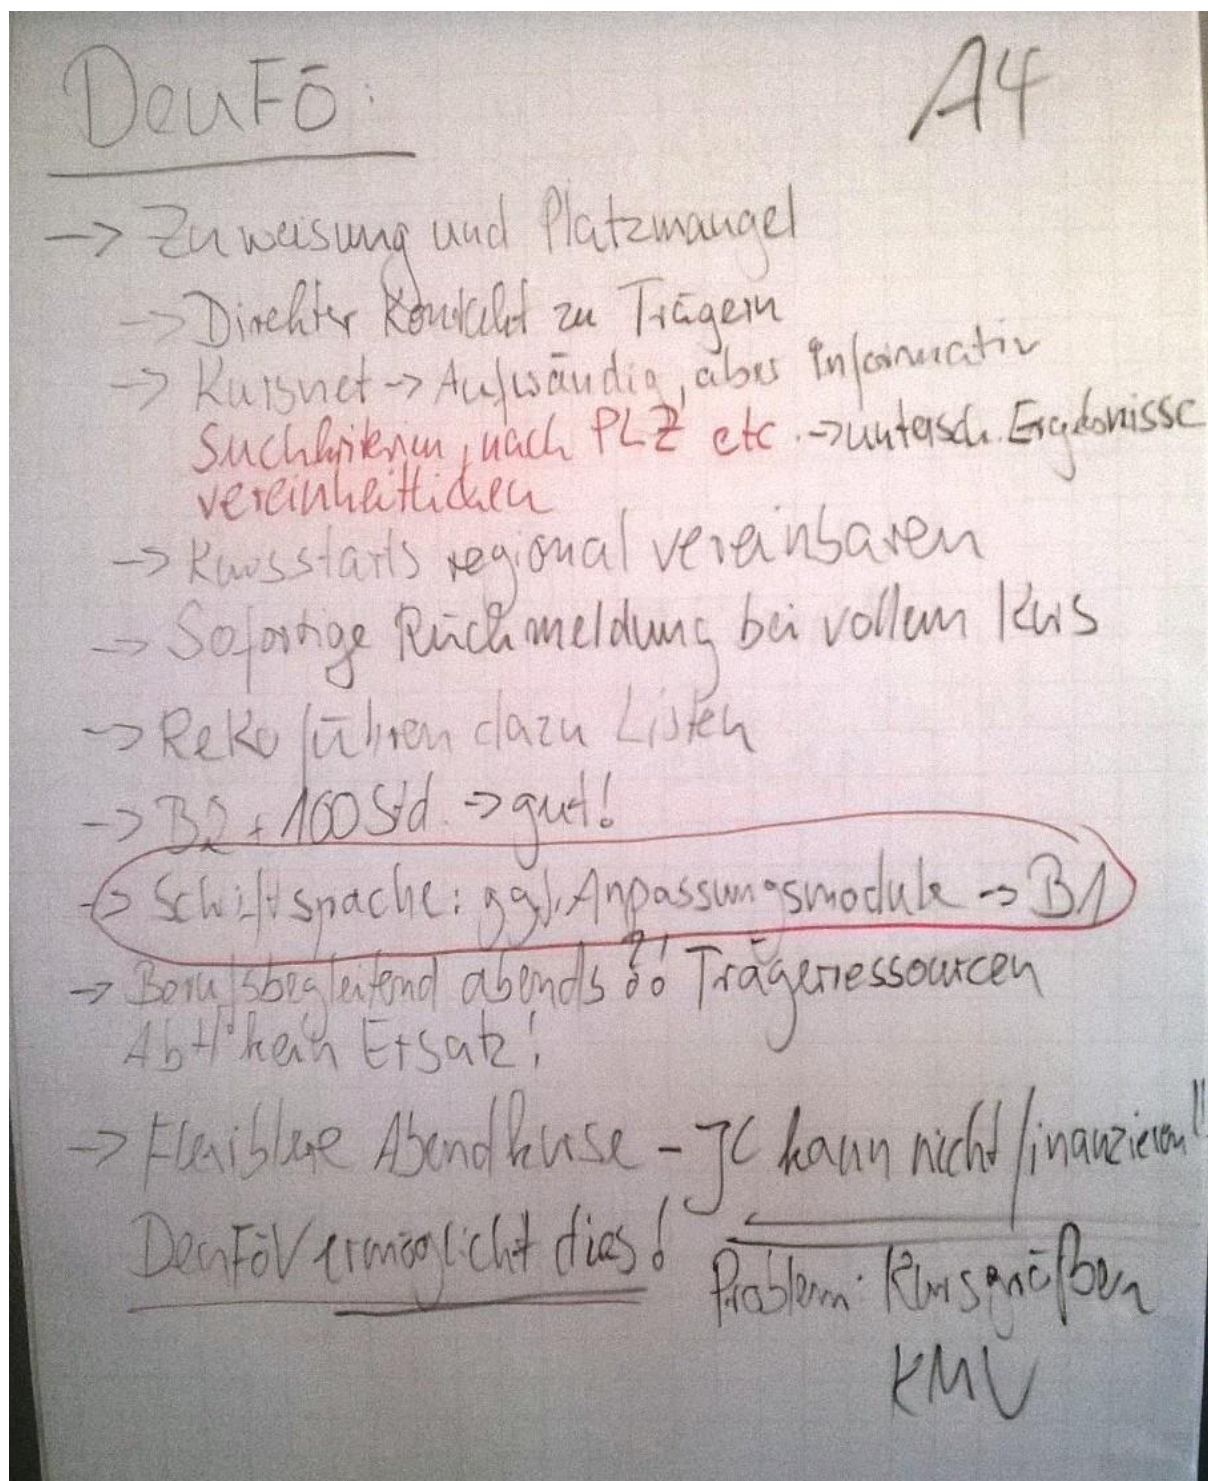 DeuFö: A4
-> Zuweisung und Platzmangel
-> Direkter Kontakt zu Trägern
-> Kursnet -> Aufwändig, aber informativ
Suchkriterien, nach PLZ etc. -> untersch. Ergebnisse
vereinheitlichen
-> Kursstarts regional vereinbaren
-> Sofortige Rückmeldung bei vollem Kurs
-> ReKo führen dazu Listen
-> B2 + 100 Std. -> gut!
-> Schriftsprache: ggf. Anpassungsmodule -> B1
-> Berufsbegleitend abends ?! Trägerressourcen
AbH kein Ersatz!
-> Flexiblere Abendkurse - JC kann nicht finanzieren!!
DeuFöV ermöglicht dies!
Problem: Kursgrößen
KMU